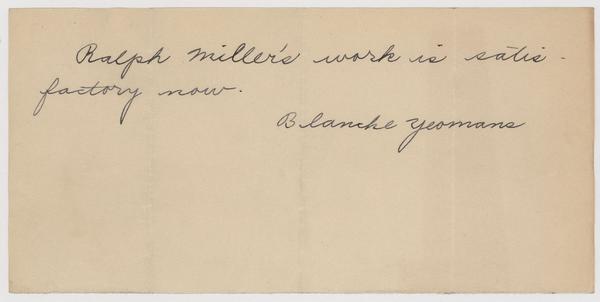 Ralph Miller's work is satis-
factory now.
Blanche Yeomans